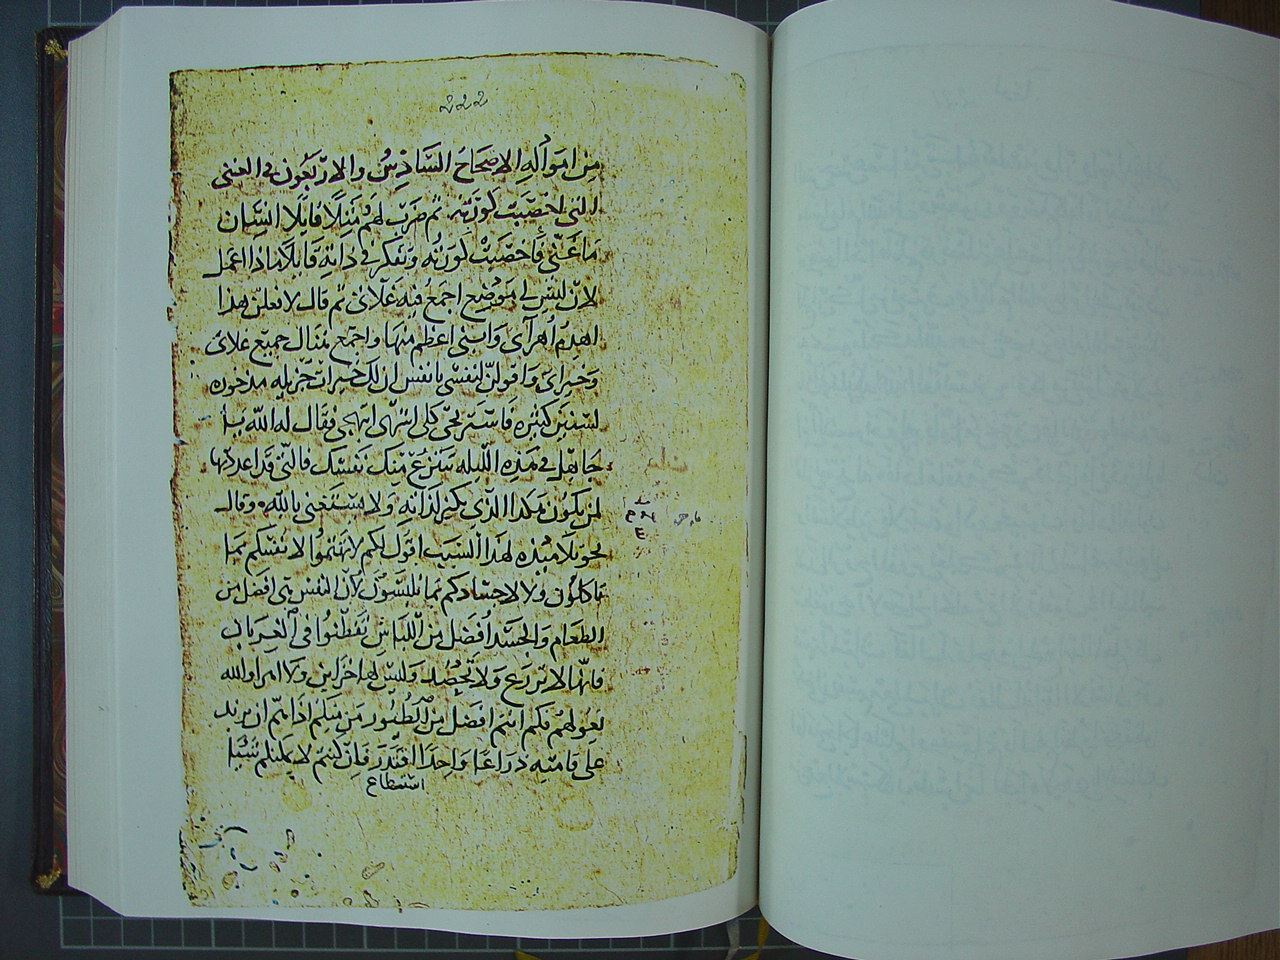 ٢٢٢
من امواله الاصحاح السّادس والاربعون في الغني
الذي اخصبت كورته ثم ضرب لهم مثلًا قايلًا انسان
ما غني فاخصبت كورته وتفكر في ذاته قايلا ماذا اعمل
لان ليس لي موضع اجمع فيه غلاتي ثم قال لافعلن هذا
اهدم اهرآي وابني اعظم منها واجمع هناك جميع غلاتي
وخيراتي واقولن لنفسي يا نفس ان لك خيرات جزيله مدخوره
لسنين كثيره فاستريحي كلي اشربي ابتهجي فقال له الله يا
جاهل في هذه الليله تنزع منك نفسك فالتي قد اعددتها
لمن يكون هكذا الذي يكنز لذاته ولا يستغني بالله وقال
نحو تلاميذه لهذا السبب اقول لكم لا تهتموا لانفسكم بما
تاكلون ولا لاجسادكم بما تلبسون لان النفس هي افضل من
الطعام والجسد افضل من اللباس تفطّنوا في الغربان
فانها لا تزرع ولا تحصد وليس لها خزاين ولا اهرا والله
يعولهم فكم انتم افضل من الطيور من منكم اذا اهتم ان يزيد
على قامته ذراعا واحدا اقتدر فان كنتم لا يمكنكم شيئا
استطاع